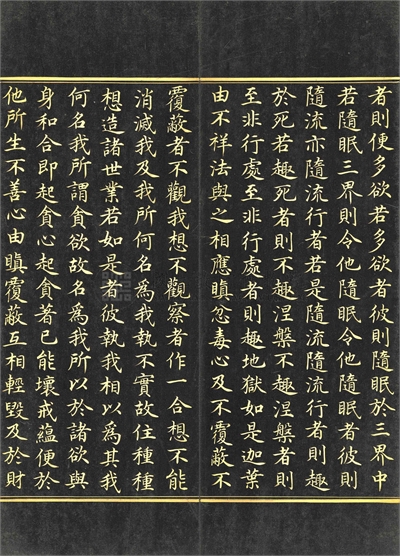 者則便多欲若多欲者彼則隨眠於三界中
若隨眠三界則令他隨眠令他隨眠者彼則
隨流亦隨流行者若是隨流隨流行者則趣
於死若趣死者則不趣涅槃不趣涅槃者則
至非行處至非行處者則趣地獄如是迦葉
由不祥法與之相應瞋忿毒心及不覆蔽不
覆蔽者不觀我想不觀察者作一合想不能
消滅我及我所何名為我執不實故住種種
想造諸世業若如是者彼執我相以為其我
何名我所謂貪欲故名為我所以於諸欲與
身和合即起貪心起貪著已能壞戒蘊便於
他所生不善心由瞋覆蔽互相輕毀及於財